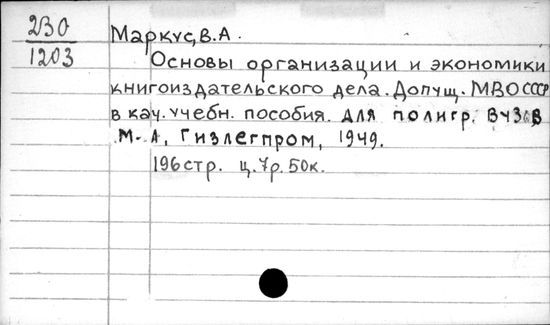 230
1203
Маркус, В.А.
Основы организации и экономики
книгоиздательского дела. Допущ. МВО СССР
в кач. учебн. пособия. для полигр. ВУЗов
М.-Л, Гизлегпром, 1949.
196 стр. ц. 7р. 50к.